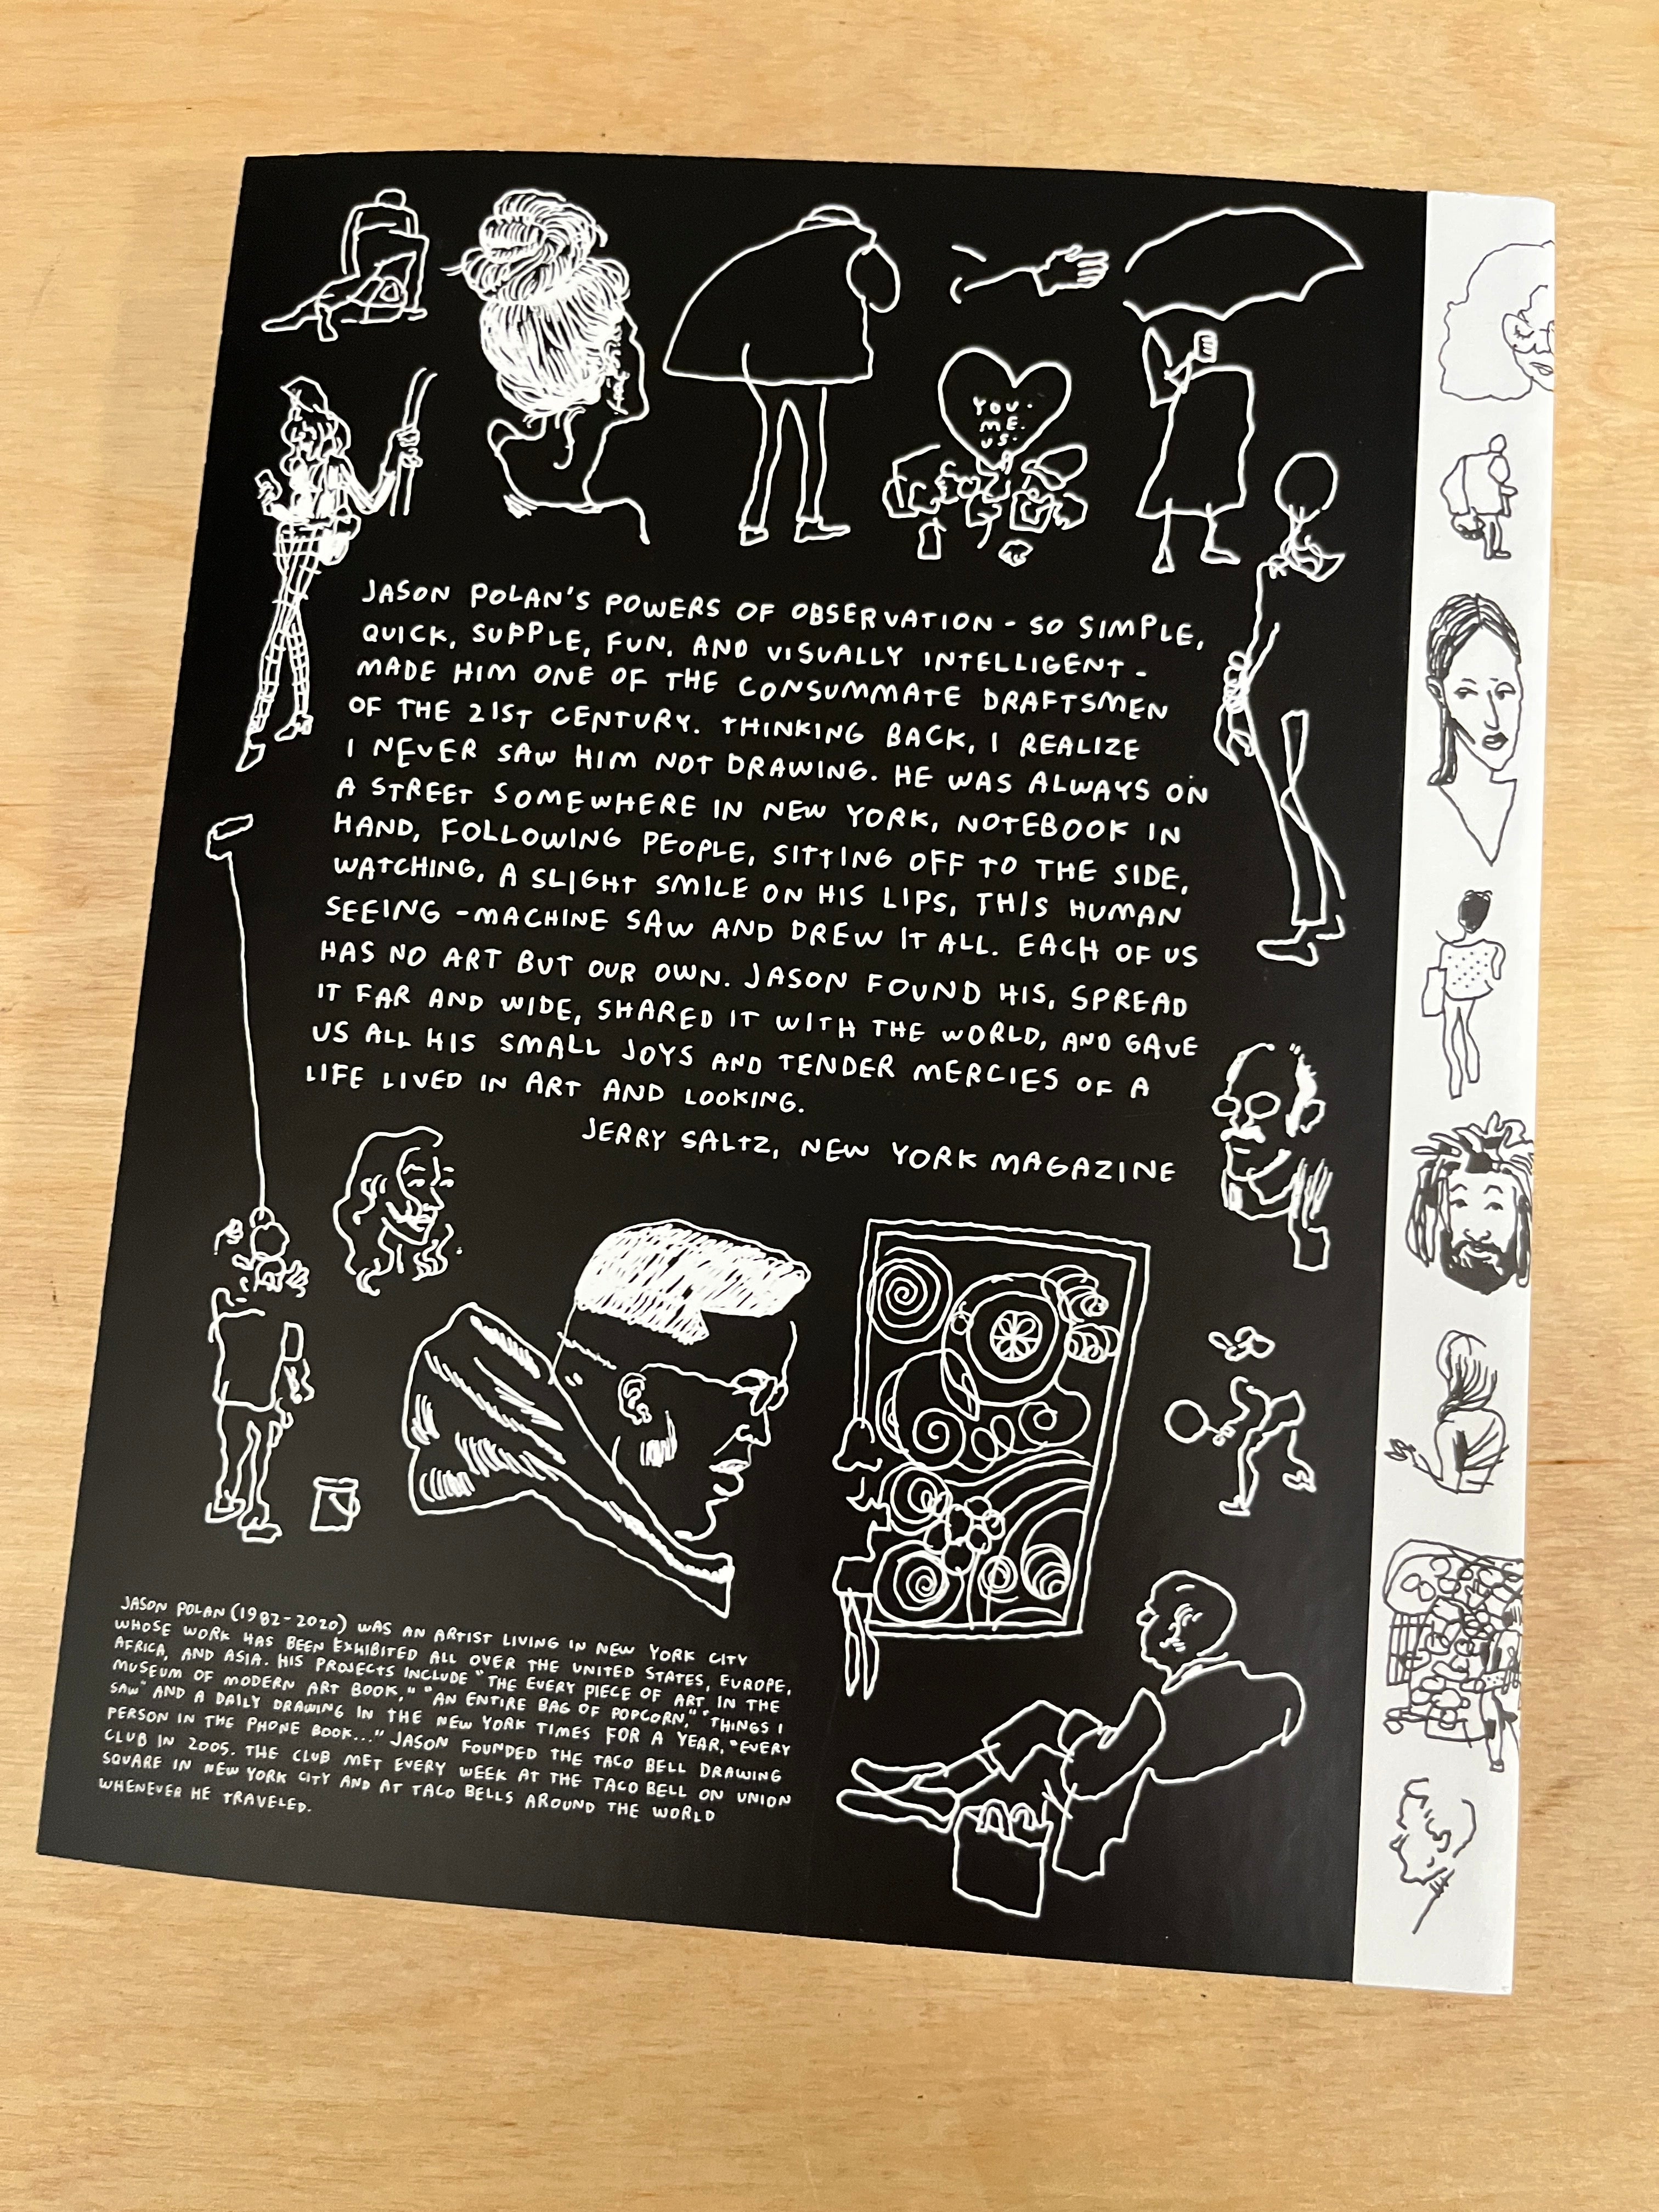 YOU.
ME.
US.
JASON POLAN'S POWERS OF OBSERVATION - SO SIMPLE,
QUICK, SUPPLE, FUN, AND VISUALLY INTELLIGENT -
MADE HIM ONE OF THE CONSUMMATE DRAFTSMEN
OF THE 21ST CENTURY. THINKING BACK, I REALIZE
I NEVER SAW HIM NOT DRAWING. HE WAS ALWAYS ON
A STREET SOMEWHERE IN NEW YORK, NOTEBOOK IN
HAND, FOLLOWING PEOPLE, SITTING OFF TO THE SIDE,
WATCHING, A SLIGHT SMILE ON HIS LIPS, THIS HUMAN
SEEING-MACHINE SAW AND DREW IT ALL. EACH OF US
HAS NO ART BUT OUR OWN. JASON FOUND HIS, SPREAD
IT FAR AND WIDE, SHARED IT WITH THE WORLD, AND GAVE
US ALL HIS SMALL JOYS AND TENDER MERCIES OF A
LIFE LIVED IN ART AND LOOKING.
JERRY SALTZ, NEW YORK MAGAZINE
JASON POLAN (1982-2020) WAS AN ARTIST LIVING IN NEW YORK CITY
WHOSE WORK HAS BEEN EXHIBITED ALL OVER THE UNITED STATES, EUROPE,
AFRICA, AND ASIA. HIS PROJECTS INCLUDE "THE EVERY PIECE OF ART IN THE
MUSEUM OF MODERN ART BOOK," "AN ENTIRE BAG OF POPCORN," "THINGS I
SAW" AND A DAILY DRAWING IN THE NEW YORK TIMES FOR A YEAR, "EVERY
PERSON IN THE PHONE BOOK..." JASON FOUNDED THE TACO BELL DRAWING
CLUB IN 2005. THE CLUB MET EVERY WEEK AT THE TACO BELL ON UNION
SQUARE IN NEW YORK CITY AND AT TACO BELLS AROUND THE WORLD
WHENEVER HE TRAVELED.